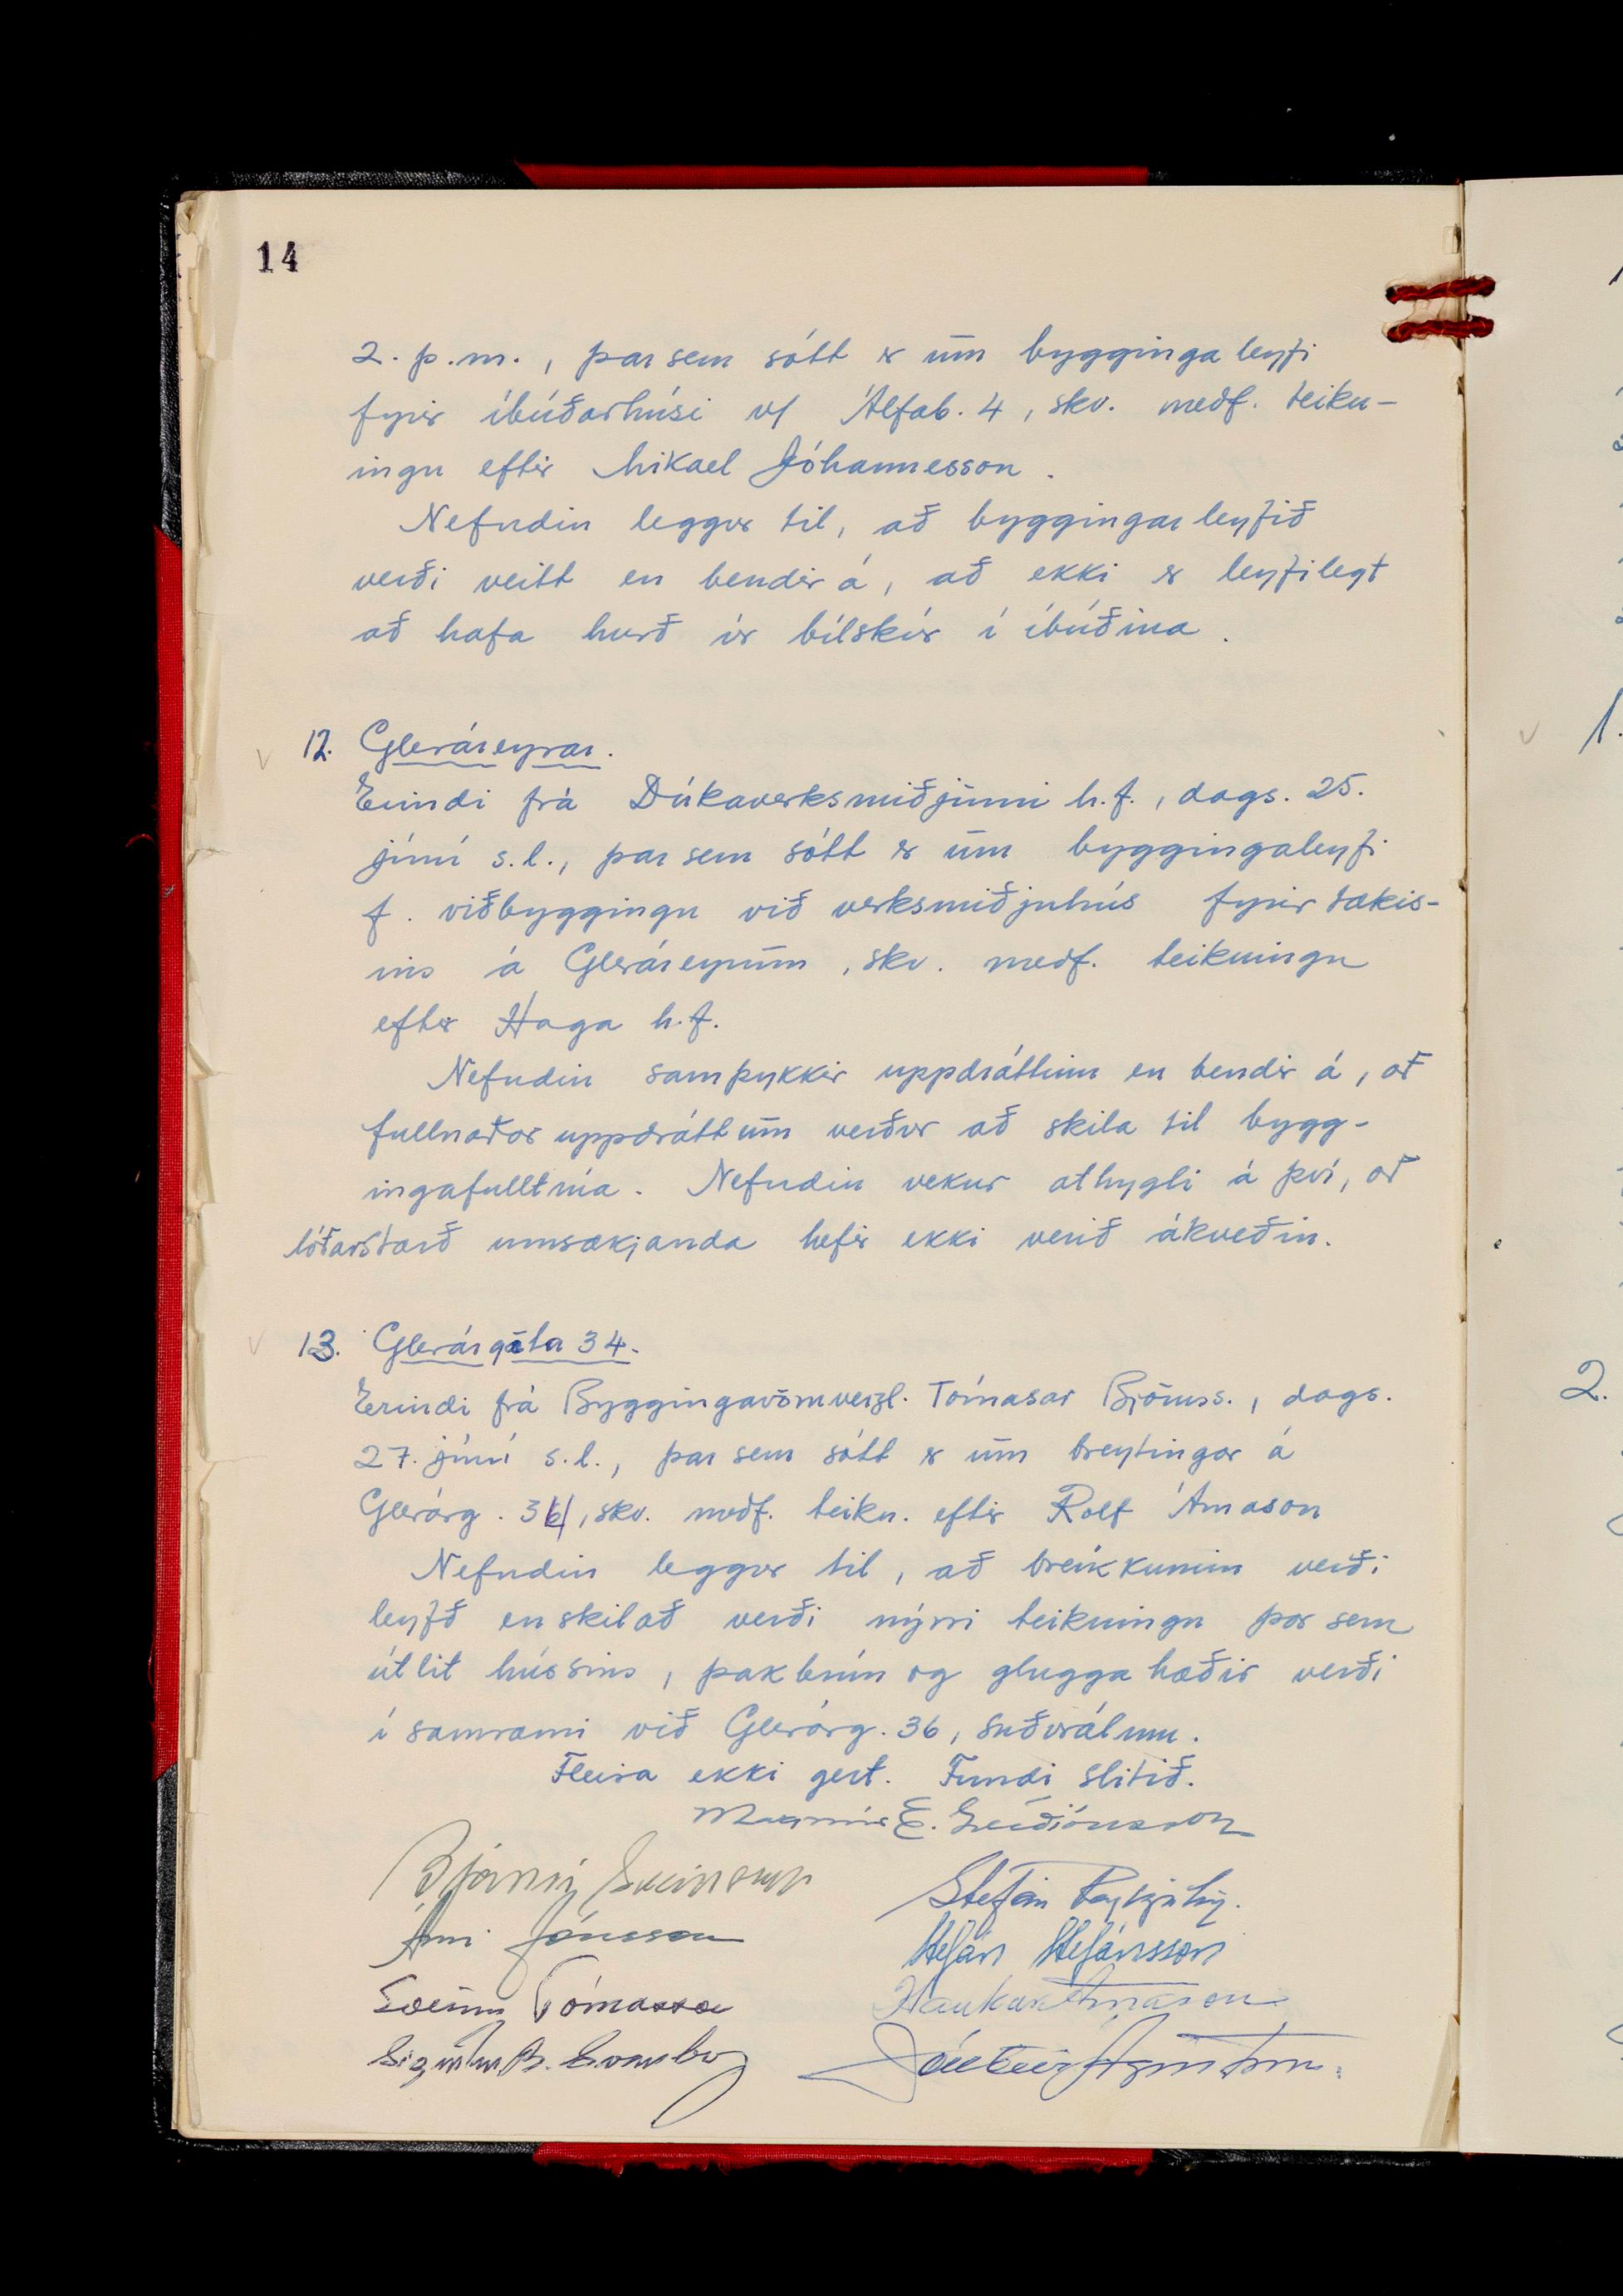 14
2. þ.m., þar sem sótt er um bygginga leyfi
fyrir íbúðarhúsi v/ Álfab. 4, skv. meðf. teikn-
ingu eftir Mikael Jóhannesson.
Nefndin leggur til, að byggingarleyfið
verði veitt en bendir á, að ekki er leyfilegt
að hafa hurð úr bílskúr í íbúðina.
12. Gleráreyrar.
Erindi frá Dúkaverksmiðjunni h.f., dags. 25.
júní s.l., þar sem sótt er um byggingaleyfi
f. viðbyggingu við verksmiðjuhús fyrirtækis-
ins á Gleráreyrum, skv. meðf. teikningu
eftir Haga h.f.
Nefndin samþykkir uppdráttinn en bendir á, að
fullnaðar uppdráttum verður að skila til bygg-
ingafulltrúa. Nefndin vekur athygli á því, að
lóðarstærð umsækjanda hefir ekki verið ákveðin.
13. Glerárgata 34.
Erindi frá Byggingavöruverzl. Tómasar Björnss., dags.
27. júní s.l., þar sem sótt er um breytingar á
Glerárg. 34, skv. meðf. teikn. eftir Rolf Árnason
Nefndin leggur til, að breikkunin verði
leyfð en skilað verði nýrri teikningu þar sem
útlit hússins, þakbrún og gluggahæðir verði
í samræmi við Glerárg. 36, suðurálmu.
Fleira ekki gert. Fundi slitið.
Magnús E. Guðjónsson
Stefán Reykjalín.
Árni Jónsson
Stefán Stefánsson
Sveinn Tómasson
Haukur Árnason
1.
2.